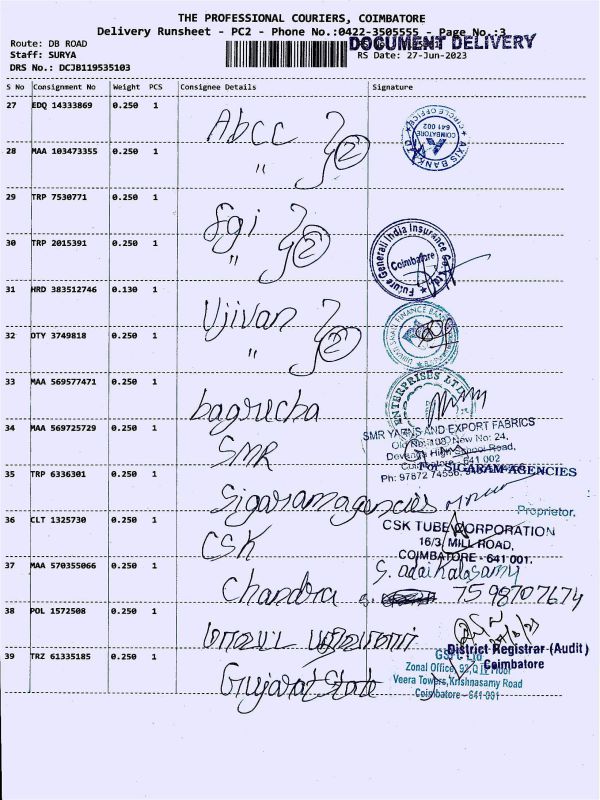 THE PROFESSIONAL COURIERS, COIMBATORE
Delivery Runsheet - PC2 - Phone No.:0422-3505555 - Page No.:3
DOCUMENT DELIVERY
Route: DB ROAD
Staff: SURYA
RS Date: 27-Jun-2023
DRS No.: DCJB119535103
S No Consignment No Weight PCS Consignee Details Signature
27 EDQ 14333869 0.250 1 Abcc 2
AXIS BANK LTD CIRCLE OFFICE COIMBATORE 641 002
28 MAA 103473355 0.250 1 "
29 TRP 7530771 0.250 1 fgi 2
30 TRP 2015391 0.250 1 "
Future Generali India Insurance Co. Ltd. Coimbatore
31 HRD 383512746 0.130 1 Ujivan 2
32 OTY 3749818 0.250 1 "
33 MAA 569577471 0.250 1 bagrecha
ENTERPRISES LTD
34 MAA 569725729 0.250 1 SMR
SMR YARNS AND EXPORT FABRICS
Old No: 108, New No: 24,
High School Road,
Coimbatore - 641 002
Ph: 97872 74556,
35 TRP 6336301 0.250 1 Sigaram agencies
For SIGARAM AGENCIES
Proprietor.
36 CLT 1325730 0.250 1 CSK
CSK TUBE CORPORATION
16/3, MILL ROAD,
COIMBATORE - 641 001.
37 MAA 570355066 0.250 1 Chandra
S. adaikalasamy
7598707674
38 POL 1572508 0.250 1 மாவட்ட
District Registrar (Audit)
Coimbatore
39 TRZ 61335185 0.250 1 Gujarat State
Zonal Office,
Veera Towers, Krishnasamy Road
Coimbatore - 641-001